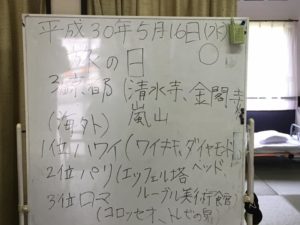 平成30年5月16日(水)
旅の日
3位京都(清水寺、金閣寺
嵐山
(海外)
1位ハワイ(ワイキキ、ダイヤモンド
ヘッド
2位パリ(エッフェル塔
ルーブル美術館
3位ローマ
(コロッセオ、トレビの泉)